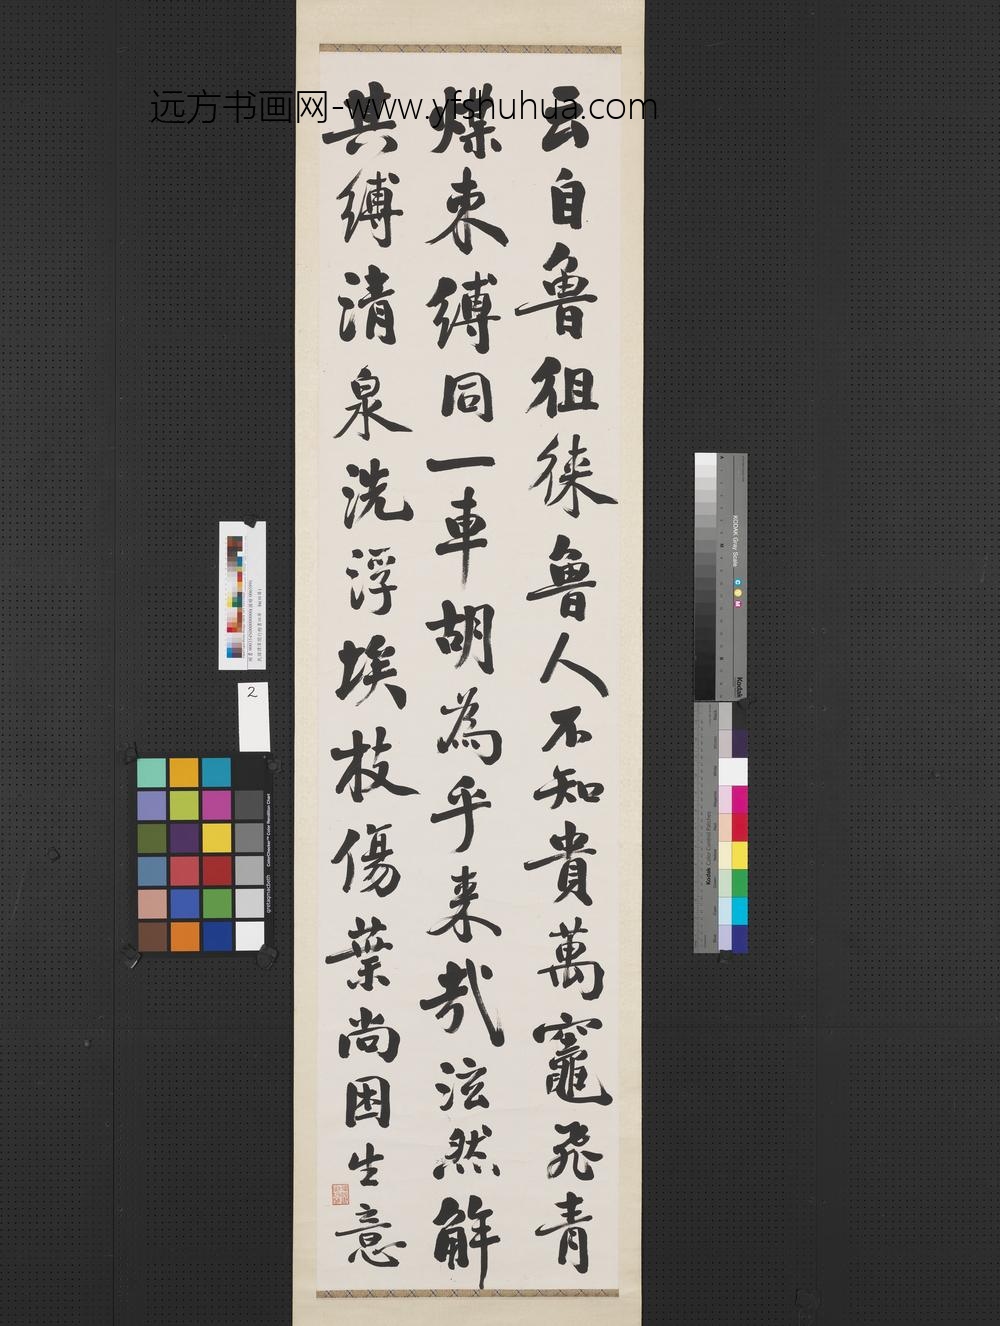 远方书画网-www.yfshuhua.com
云自魯徂徠魯人不知貴萬竈飛青
煤束縛同一車胡為乎來哉泫然解
其縛清泉洗浮埃枝傷葉尚困生意
2
KODAK Gray Scale
C Y M
Kodak
Kodak Color Control Patches
ColorChecker™ Color Rendition Chart
gretagmacbeth